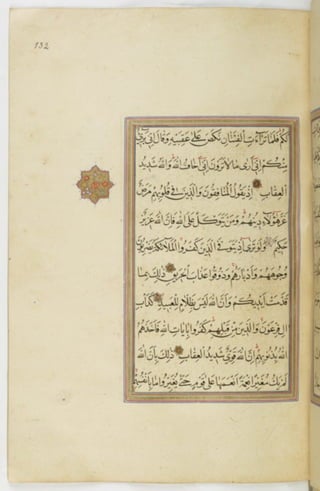 132
لَكُمْ فَلَمَّا تَرَآءَتِ الْفِئَتَانِ نَكَصَ عَلَىٰ عَقِبَيْهِ وَقَالَ اِنّ۪ي بَر۪ٓيءٌ
مِنْكُمْ اِنّ۪ٓي اَرٰى مَا لَا تَرَوْنَ اِنّ۪ٓي اَخَافُ اللّٰهَ وَاللّٰهُ شَد۪يدُ
الْعِقَابِ اِذْ يَقُولُ الْمُنَافِقُونَ وَالَّذ۪ينَ ف۪ي قُلُوبِهِمْ مَرَضٌ
غَرَّ هٰٓؤُلَآءِ د۪ينُهُمْ وَمَنْ يَتَوَكَّلْ عَلَى اللّٰهِ فَاِنَّ اللّٰهَ عَز۪يزٌ
حَك۪يمٌ وَلَوْ تَرٰٓى اِذْ يَتَوَفَّى الَّذ۪ينَ كَفَرُوا الْمَلٰٓئِكَةُ يَضْرِبُونَ
وُجُوهَهُمْ وَاَدْبَارَهُمْ وَذُوقُوا عَذَابَ الْحَر۪يقِ ذٰلِكَ بِمَا
قَدَّمَتْ اَيْد۪يكُمْ وَاَنَّ اللّٰهَ لَيْسَ بِظَلَّامٍ لِلْعَب۪يدِ كَدَاْبِ
اٰلِ فِرْعَوْنَ وَالَّذ۪ينَ مِنْ قَبْلِهِمْ كَفَرُوا بِاٰيَاتِ اللّٰهِ فَاَخَذَهُمُ
اللّٰهُ بِذُنُوبِهِمْ اِنَّ اللّٰهَ قَوِيٌّ شَد۪يدُ الْعِقَابِ ذٰلِكَ بِاَنَّ اللّٰهَ
لَمْ يَكُ مُغَيِّرًا نِعْمَةً اَنْعَمَهَا عَلٰى قَوْمٍ حَتّٰى يُغَيِّرُوا مَا بِاَنْفُسِهِمْ